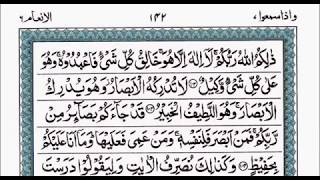 واذا سمعوا ٧ ١٤٢ الانعام ٦
ذٰلِكُمُ اللّٰهُ رَبُّكُمْ ۚ لَاۤ اِلٰهَ اِلَّا هُوَ ۚ خَالِقُ كُلِّ شَیْءٍ فَاعْبُدُوْهُ ۚ وَهُوَ
عَلٰی كُلِّ شَیْءٍ وَّكِیْلٌ ۝ لَا تُدْرِكُهُ الْاَبْصَارُ ۫ وَهُوَ یُدْرِكُ
الْاَبْصَارَ ۚ وَهُوَ اللَّطِیْفُ الْخَبِیْرُ ۝ قَدْ جَآءَكُمْ بَصَآىِٕرُ مِنْ
رَّبِّكُمْ ۚ فَمَنْ اَبْصَرَ فَلِنَفْسِهٖ ۚ وَمَنْ عَمِیَ فَعَلَیْهَا ؕ وَمَاۤ اَنَا عَلَیْكُمْ
بِحَفِیْظٍ ۝ وَكَذٰلِكَ نُصَرِّفُ الْاٰیٰتِ وَلِیَقُوْلُوْا دَرَسْتَ